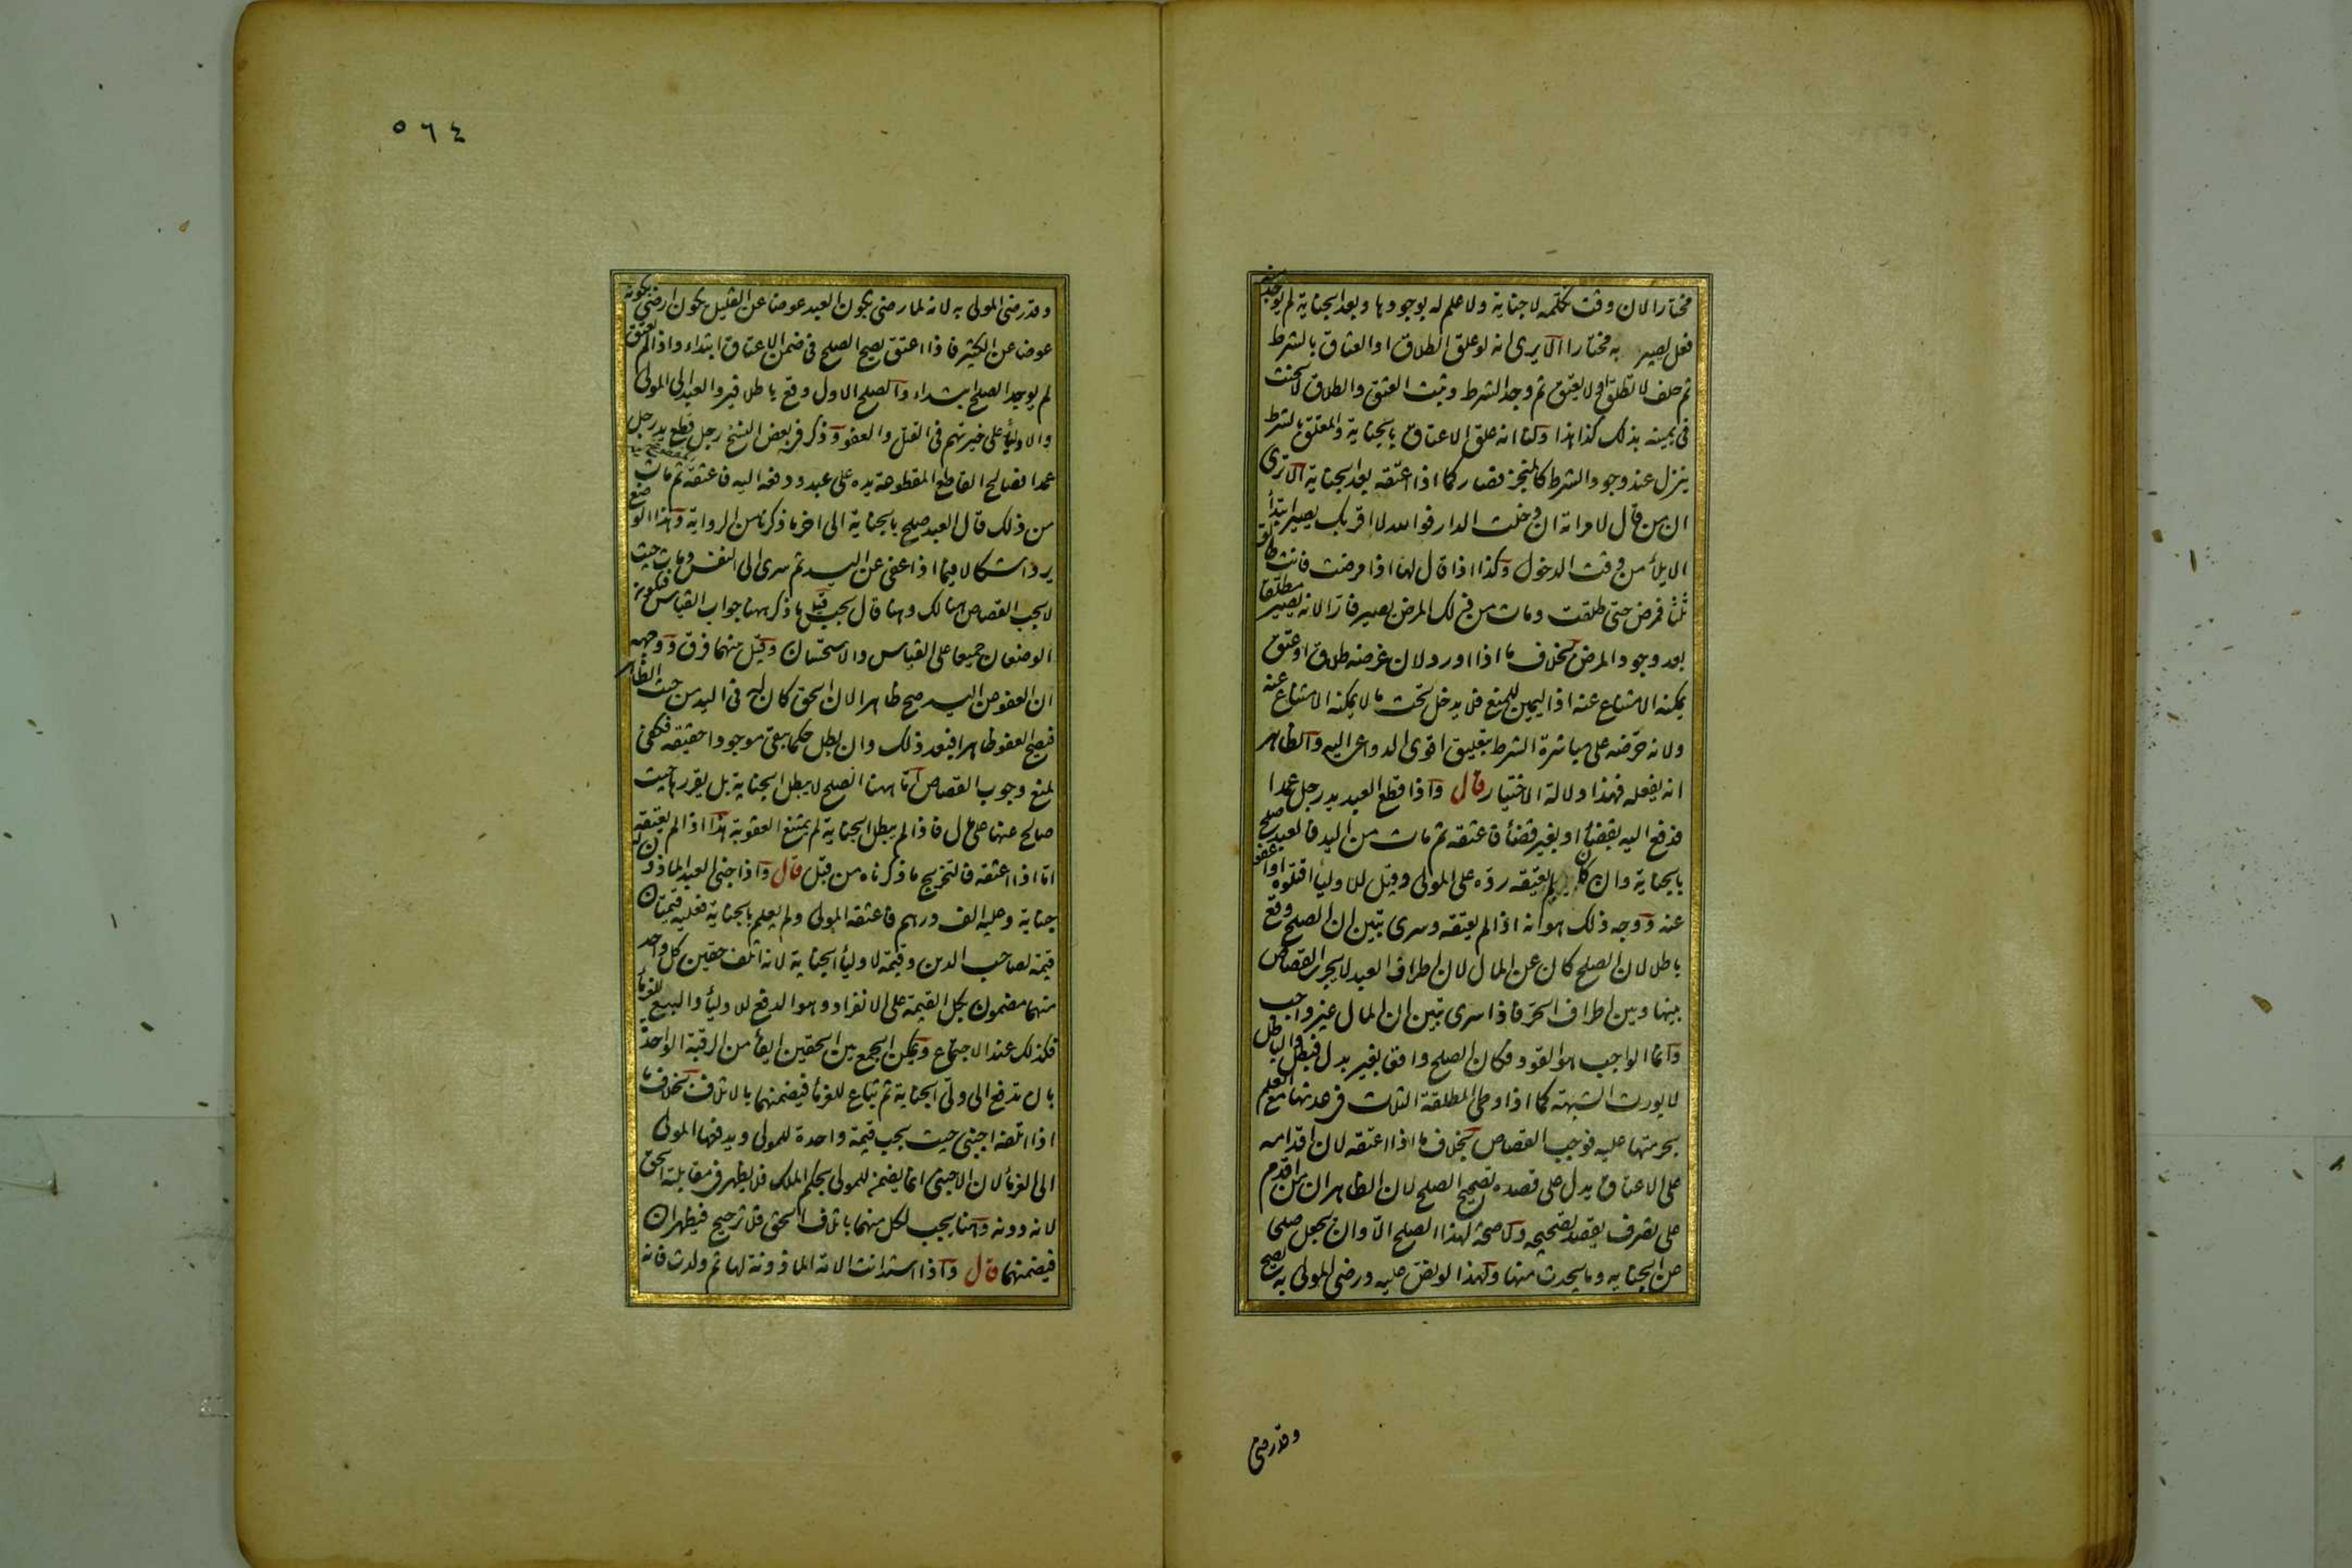 مختارا لان وقت تكلمه لا جناية ولا علم له بوجودها وبعد الجناية لم يوجد منه
فعل يصير به مختارا الا يرى انه لو علق الطلاق او العتاق بالشرط
ثم حلف لا تطلق او لا يعتق ثم وجد الشرط وثبت العتق والطلاق لا يحنث
فى يمينه بذلك كذا هذا ولنا انه علق الاعتاق بالجناية والمعلق بالشرط
ينزل عند وجود الشرط كالمنجز فصار كما اذا اعتقه بعد الجناية الا ترى
ان من قال لامراته ان دخلت الدار فوالله لا اقربك يصير ابتدأ
الايلأ من وقت الدخول وكذا اذا قال لها اذا مرضت فانت طالق
ثلثا فمرض حتى طلقت ومات من ذلك المرض يصير فارا لانه يصير مطلقا
بعد وجود المرض بخلاف ما اذا اورد لان غرضه طلاق او عتق
يمكنه الامتناع عنه اذ اليمين للمنع فلا يدخل تحت ما لا يمكنه الامتناع عنه
ولانه حرضه على مباشرة الشرط بتعليق اقوى الدواعى اليه والظاهر
انه يفعله فهذا دلالة الاختيار قال واذا قطع العبد يد رجل عمدا
فدفع اليه بقضأ او بغير قضأ فاعتقه ثم مات من اليد فالعبد صلح
بالجناية وان كان لم يعتقه رده على المولى وقيل للاوليأ اقتلوه او اعفوا
عنه ووجه ذلك هو انه اذا لم يعتقه وسرى تبين ان الصلح وقع
باطلا لان الصلح كان عن المال لان اطراف العبد لا يجرى القصاص
بينها وبين اطراف الحر فاذا سرى تبين ان المال غير واجب
وانما الواجب هو القود فكان الصلح واقعا بغير بدل فبطل والباطل
لا يورث الشبهة كما اذا وطى المطلقة الثلاث فى عدتها مع العلم
بحرمتها عليه فوجب القصاص بخلاف ما اذا اعتقه لان اقدامه
على الاعتاق يدل على قصده تصحيح الصلح لان الظاهر ان من اقدم
على تصرف يقصد تصحيحه ولا صحة لهذا الصلح الا وان يجعل صلحا
عن الجناية وما يحدث منها ولهذا لو نص عليه ورضى المولى به يصح
وقد رضى
٥٦٤
وقد رضى المولى به لانه لما رضى بكون العبد عوضا عن القليل يكون ارضى بكونه
عوضا عن الكثير فاذا اعتق يصح الصلح فى ضمن الاعتاق ابتداء واذا لم يعتق
لم يوجد الصلح ابتداء والصلح الاول وقع باطلا فيرد العبد الى المولى
والاوليأ على خيرتهم فى القتل والعفو وذكر فى بعض النسخ رجل قطع يد رجل
عمدا فصالح القاطع المقطوعة يده على عبد ودفعه اليه فاعتقه ثم مات
من ذلك قال العبد صلح بالجناية الى اخر ما ذكرنا من الرواية وهذا الوضع
يرد اشكالا فيما اذا عفى عن اليد ثم سرى الى النفس ومات حيث
لا يجب القصاص هنالك وهنا قال يجب قيل ما ذكر ههنا جواب القياس فيكون
الوضعان جميعا على القياس والاستحسان وقيل بينهما فرق ووجهه
ان العفو عن اليد صح ظاهرا لان الحق كان له فى اليد من حيث الظاهر
فيصح العفو ظاهرا فبعد ذلك وان بطل حكما يبقى موجودا حقيقة فكفى
لمنع وجوب القصاص اما ههنا الصلح لا يبطل الجناية بل يقررها حيث
صالح عنها على مال فاذا لم يبطل الجناية لم يمتنع العقوبة هذا اذا لم يعتقه
اما اذا اعتقه فالتخريج ما ذكرناه من قبل قال واذا جنى العبد الماذون له
جناية وعليه الف درهم فاعتقه المولى ولم يعلم بالجناية فعليه قيمتان
قيمة لصاحب الدين وقيمة لاوليأ الجناية لانه اتلف حقين كل واحد
منهما مضمون بكل القيمة على الانفراد وهو الدفع للاوليأ والبيع للغرمأ
فكذلك عند الاجتماع ويمكن الجمع بين الحقين ايفأ من الرقبة الواحدة
بان تدفع الى ولى الجناية ثم تباع للغرمأ فيضمنهما بالاتلاف بخلاف ما
اذا اتلفه اجنبى حيث يجب قيمة واحدة للمولى ويدفعها المولى
الى الغرمأ لان الاجنبى انما يضمن للمولى بحكم الملك فلا يظهر فى مقابلته الحق
لانه دونه وههنا يجب لكل منهما باتلاف الحق فلا ترجيح فيظهران
فيضمنهما قال واذا استدانت الامة الماذونة لها ثم ولدت فانه